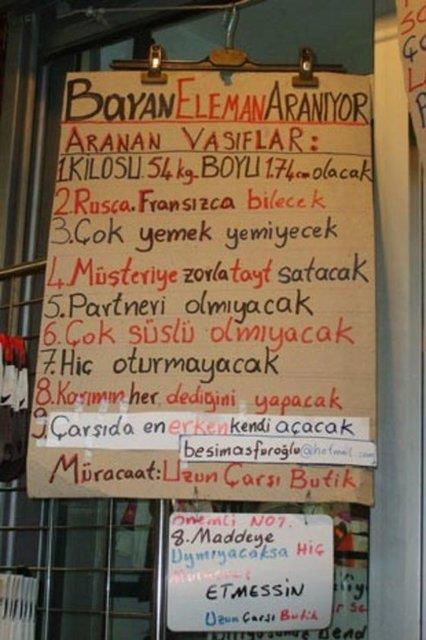 BAYAN ELEMAN ARANIYOR
ARANAN VASIFLAR:
1.KİLOSU.54kg.BOYU 1.74cm olacak
2.Rusça.Fransızca bilecek
3.Çok yemek yemiyecek
4.Müşteriye zorla tayt satacak
5.Partneri olmıyacak
6.Çok süslü olmıyacak
7.Hiç oturmayacak
8.Karımın her dediğini yapacak
9.Çarşıda en erken kendi açacak
besimasfuroğlu@hotmail.com
Müracaat: Uzun Çarşı Butik
ÖNEMLİ NOT.
8.Maddeye
Uymıyacaksa HİÇ
ETMESSİN
Uzun Çarşı Butik